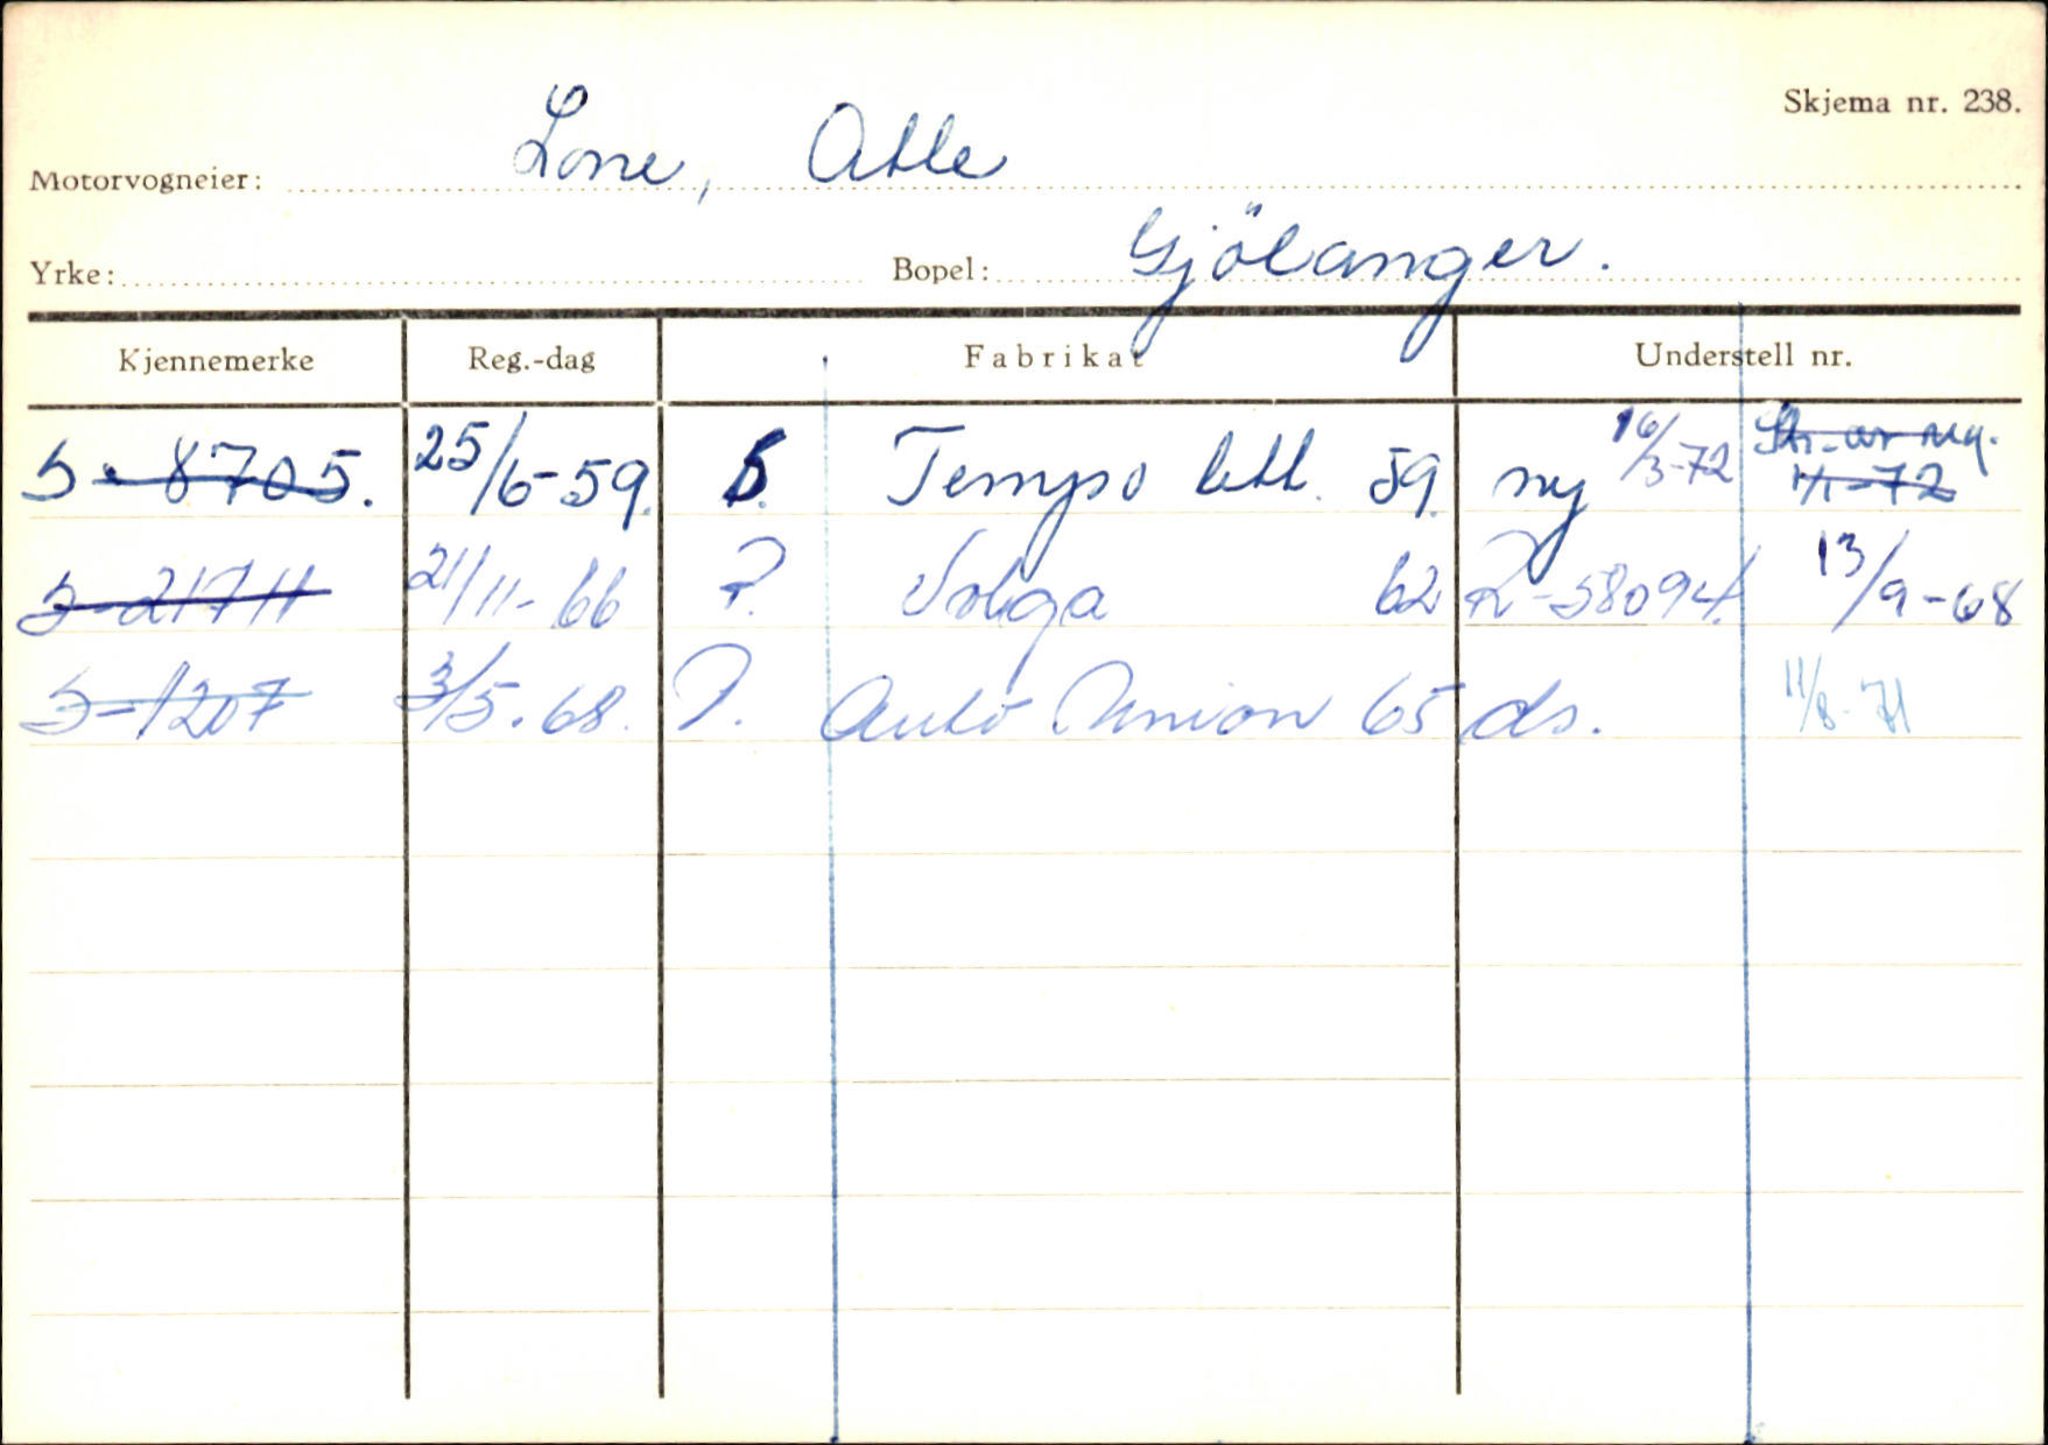 Skjema nr. 238.
Motorvogneier: Lone, Atle
Yrke: Bopel: Gjölanger.
Kjennemerke Reg.-dag Fabrikat Understell nr.
S-8705. 25/6-59. Tempo lett. 59. ny 16/3-72 Str. av reg. 1/1-72
S-21711 21/11-66 P. Volga 62 R-58094. 13/9-68
S-1207 3/5.68. P. Auto Union 65 ds. 11/8-71